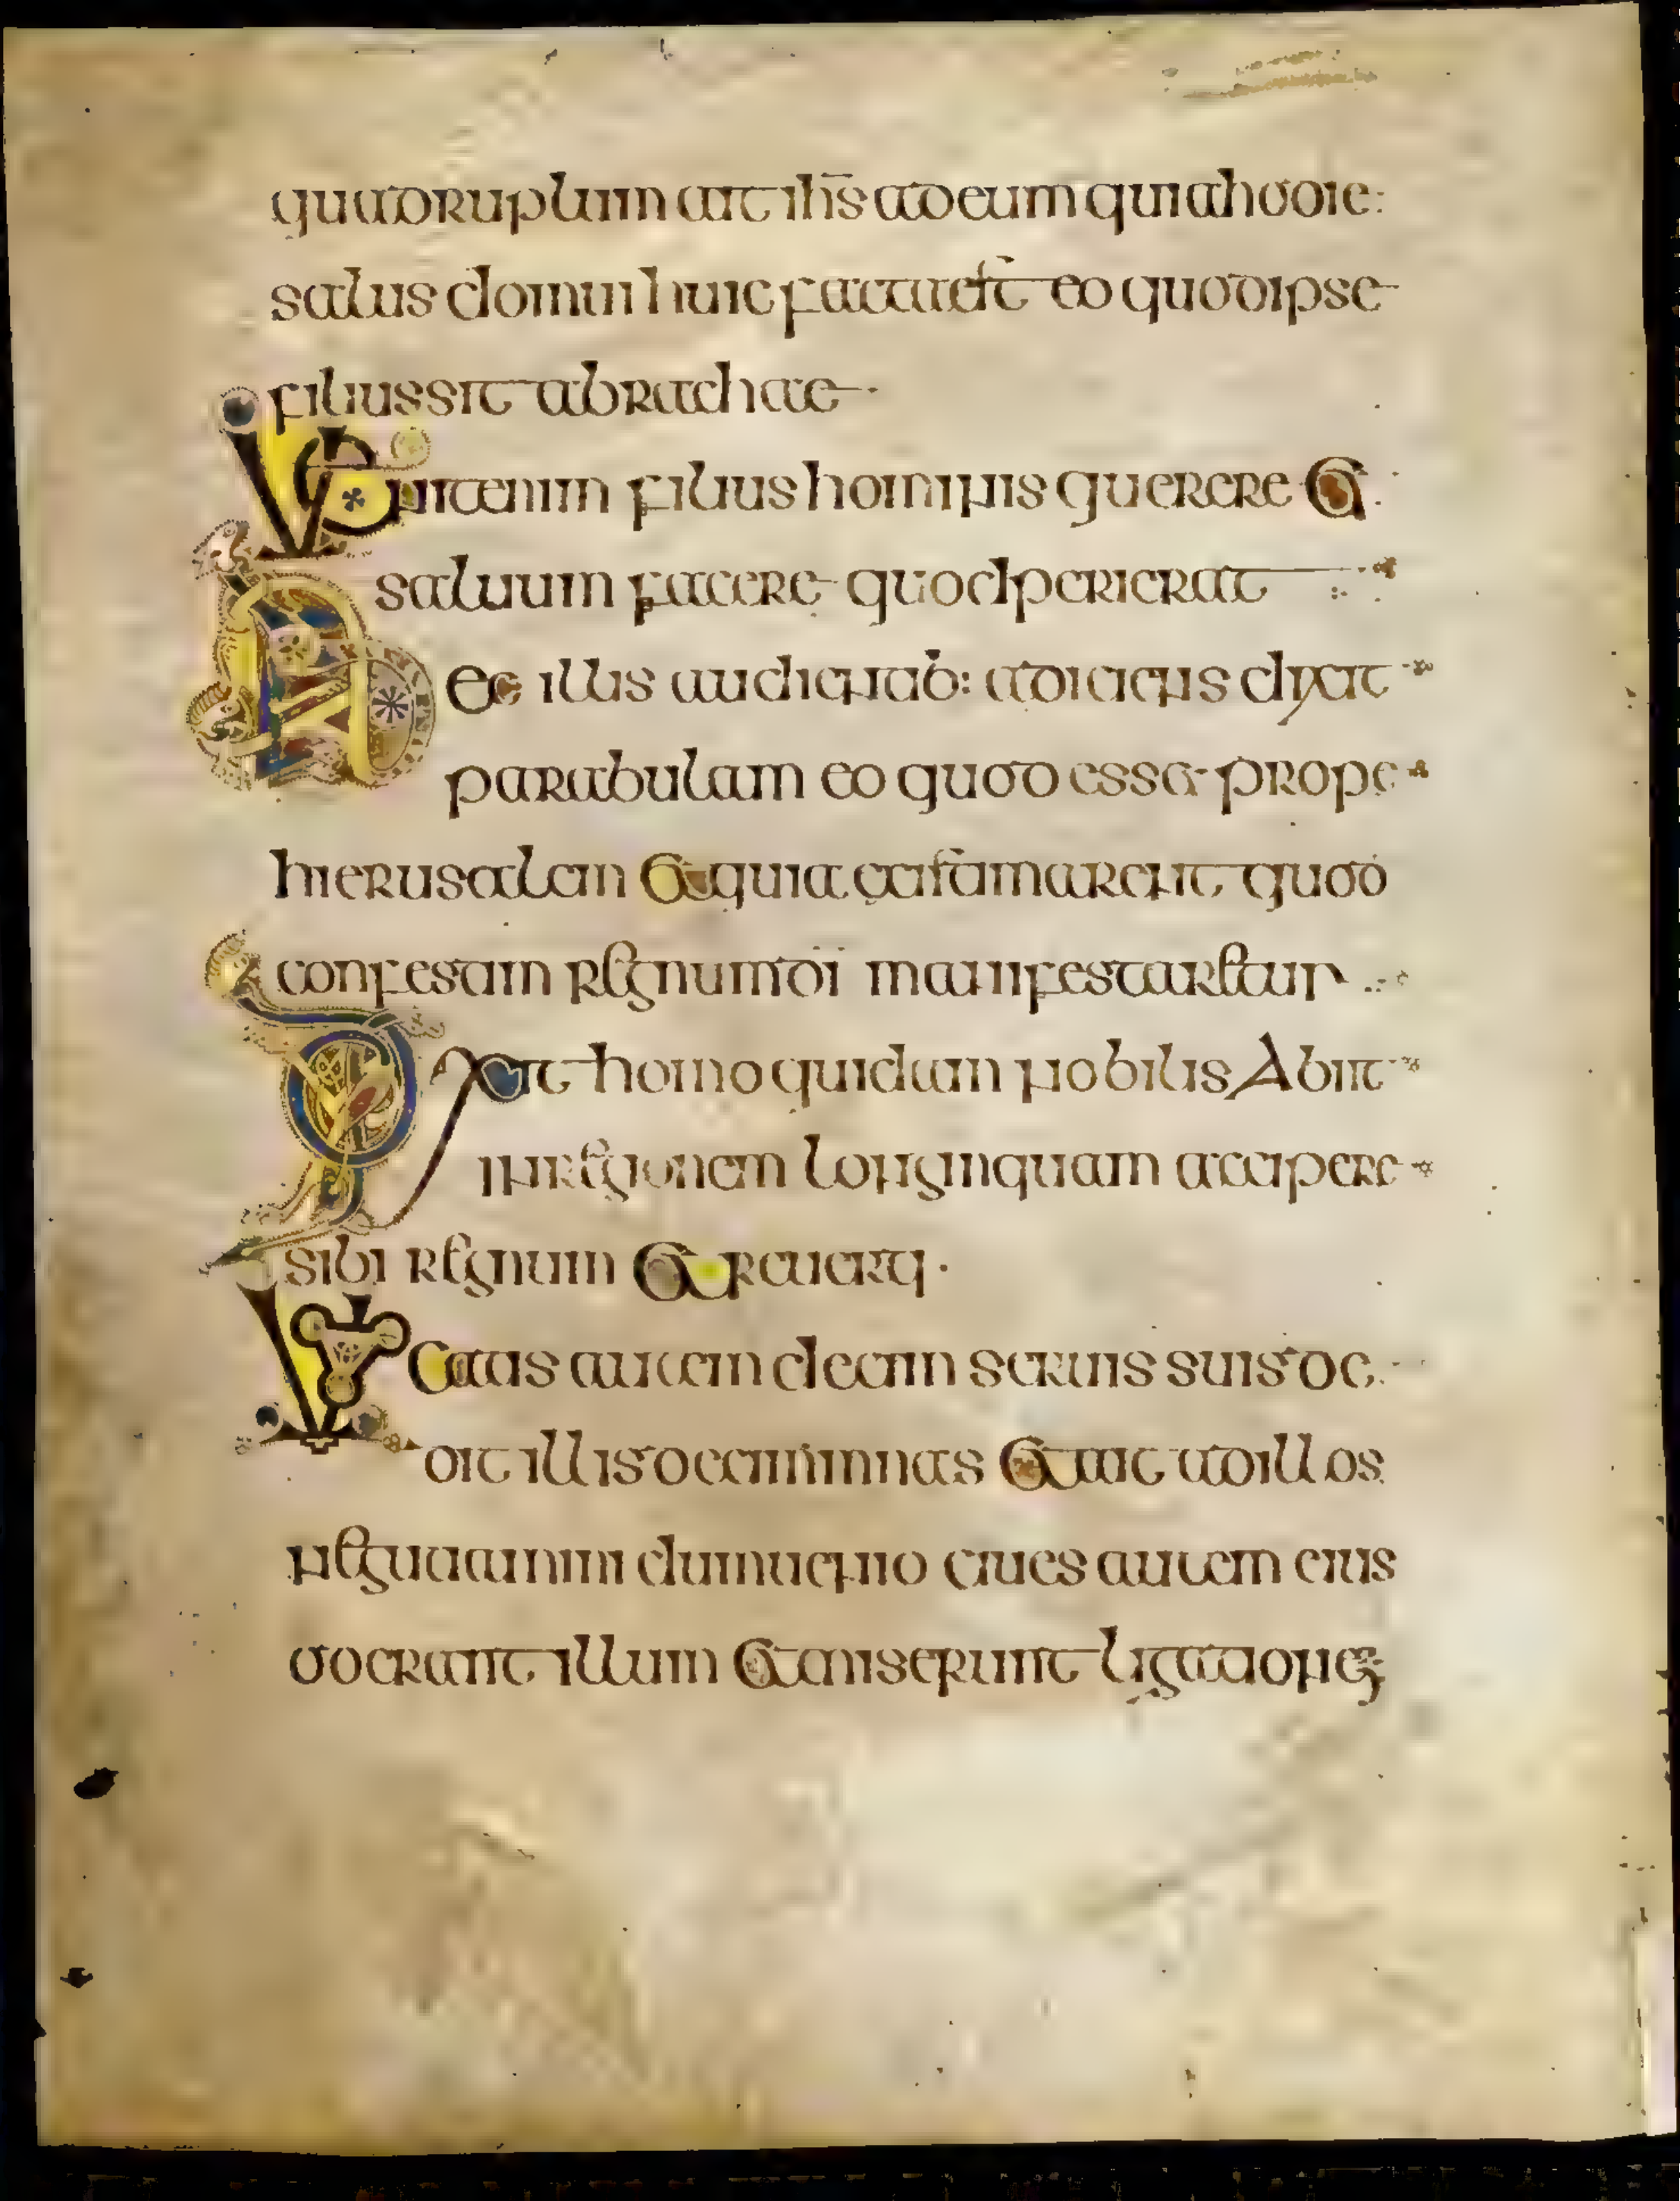 quadruplum ait ihs ad eum quia hodie
salus domui huic facta est eo quod ipse
filius sit abrachae
Venit enim filius hominis querere et
saluum facere quod perierat
Haec illis audientib: adiciens dixit
parabulam eo quod esset prope
hierusalem et quia existimarent quod
confestim regnum di manifestaretur
Dixit homo quidam nobilis Abiit
in regionem longinquam accipere
sibi regnum et reuerti
Vocatis autem decem seruis suis de
dit illis decim mnas et ait ad illos
negotiamini dum uenio ciues autem eius
oderant illum et miserunt legationē